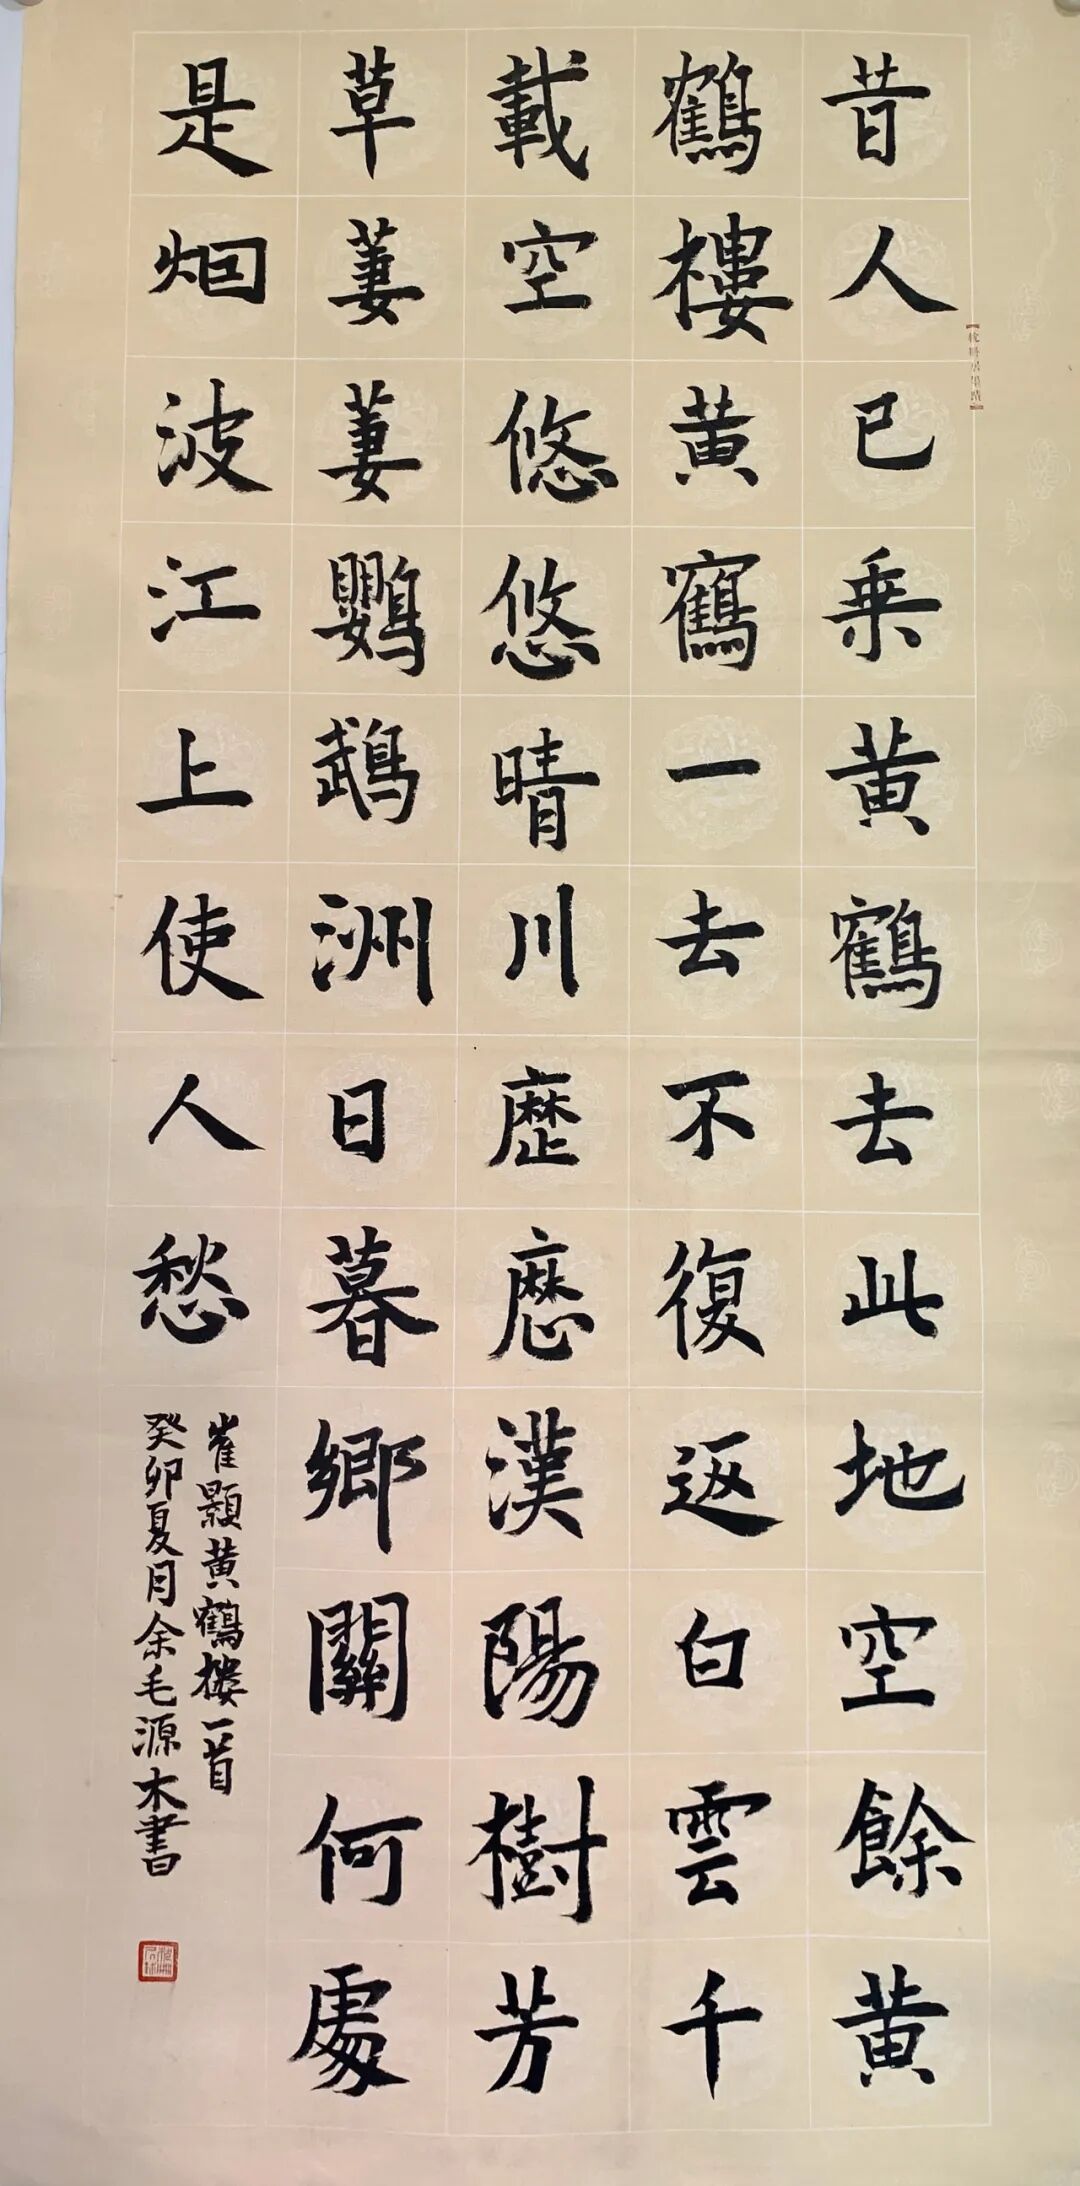 昔人已乗黄鶴去此地空餘黄
鶴樓黄鶴一去不復返白雲千
載空悠悠晴川歷歷漢陽樹芳
草萋萋鸚鵡洲日暮鄉關何處
是烟波江上使人愁
崔顥黄鶴樓一首
癸卯夏月余毛源木書